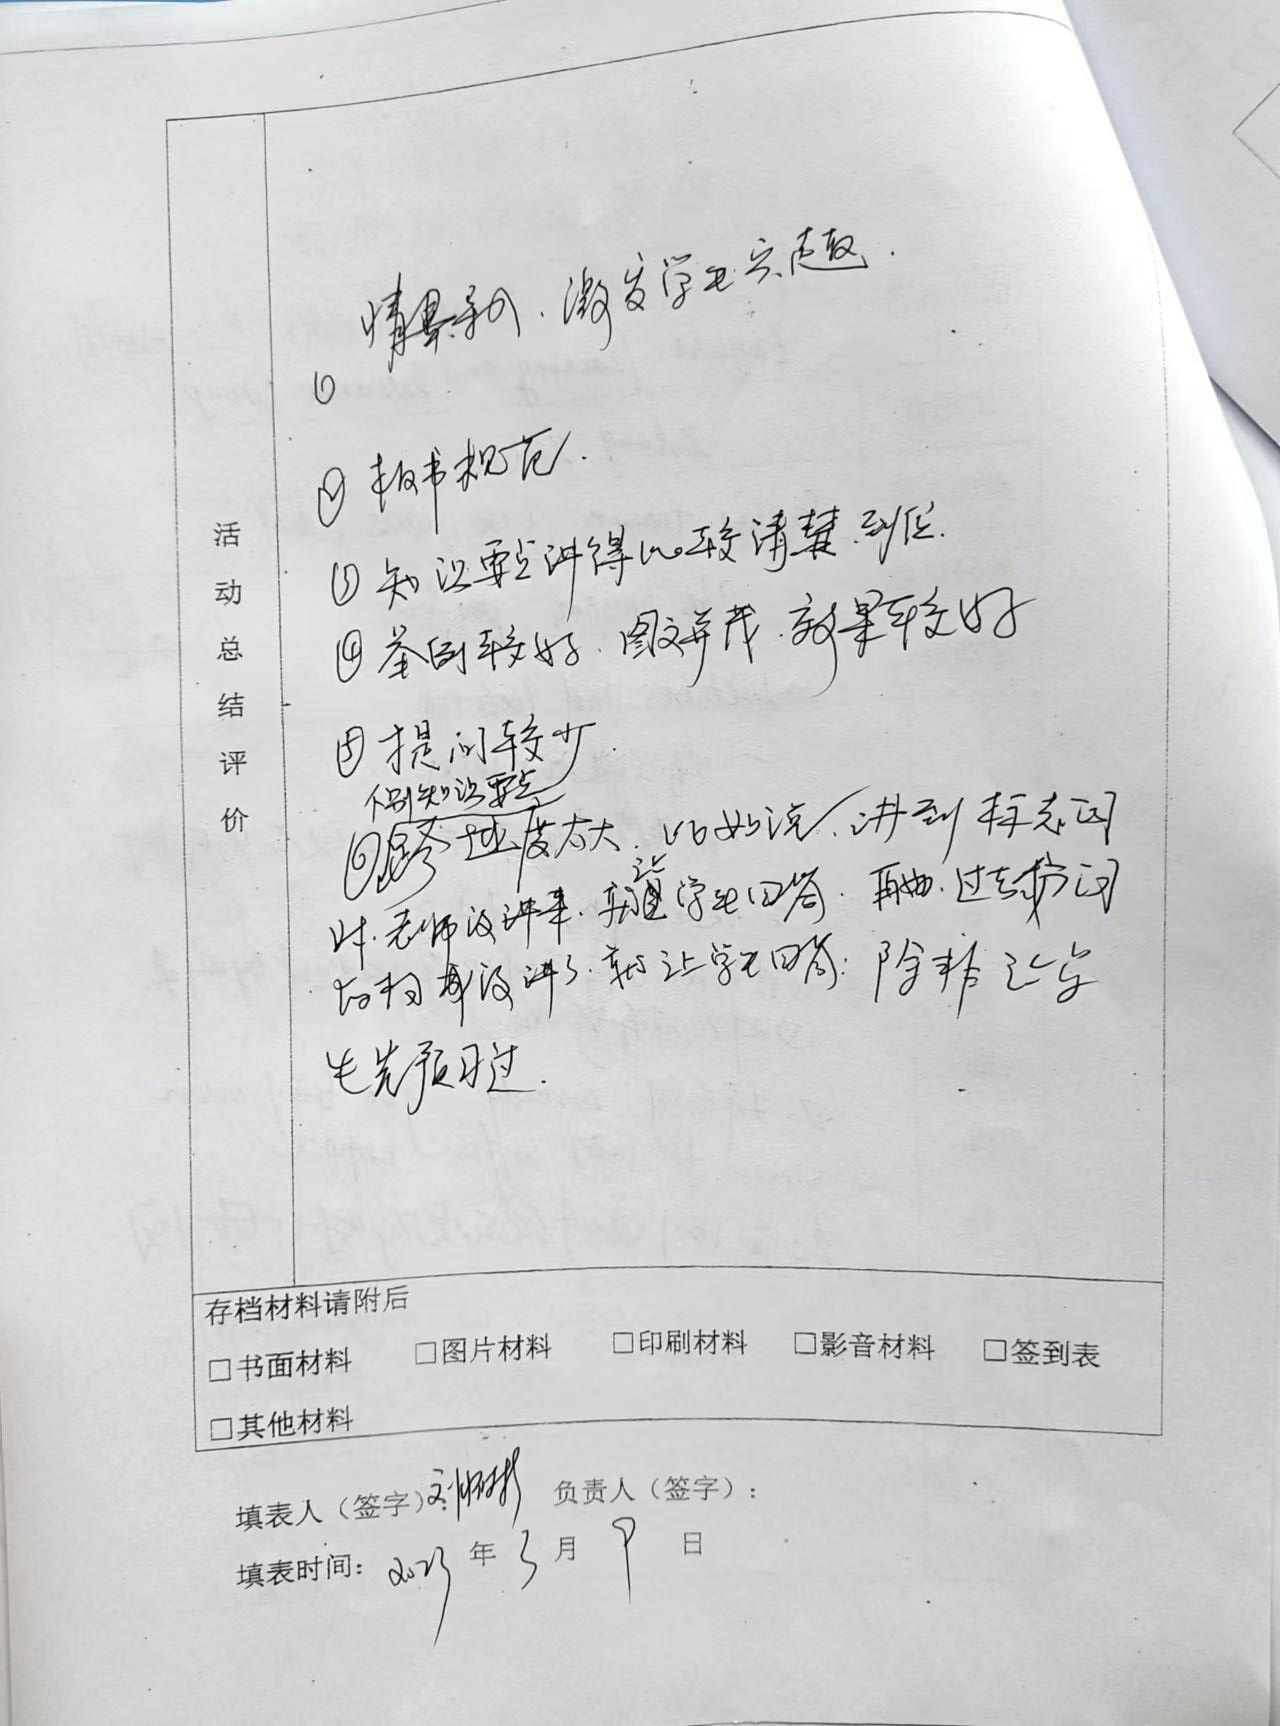 活动总结评价
情景导入、激发学生兴趣.
①
② 板书规范.
③ 知识要点讲得比较清楚、到位.
④ 举例较好、图文并茂、效果较好
⑤ 提问较少.
个别知识要点
⑥ 跨越度太大、比如说、讲到标志词
时、老师没讲来、就让学生回答、再如、过去分词
结构都没讲了、就让学生回答；除非让学
生先预习过.
存档材料请附后
□书面材料 □图片材料 □印刷材料 □影音材料 □签到表
□其他材料
填表人（签字）： 负责人（签字）：
填表时间：2023年3月9日